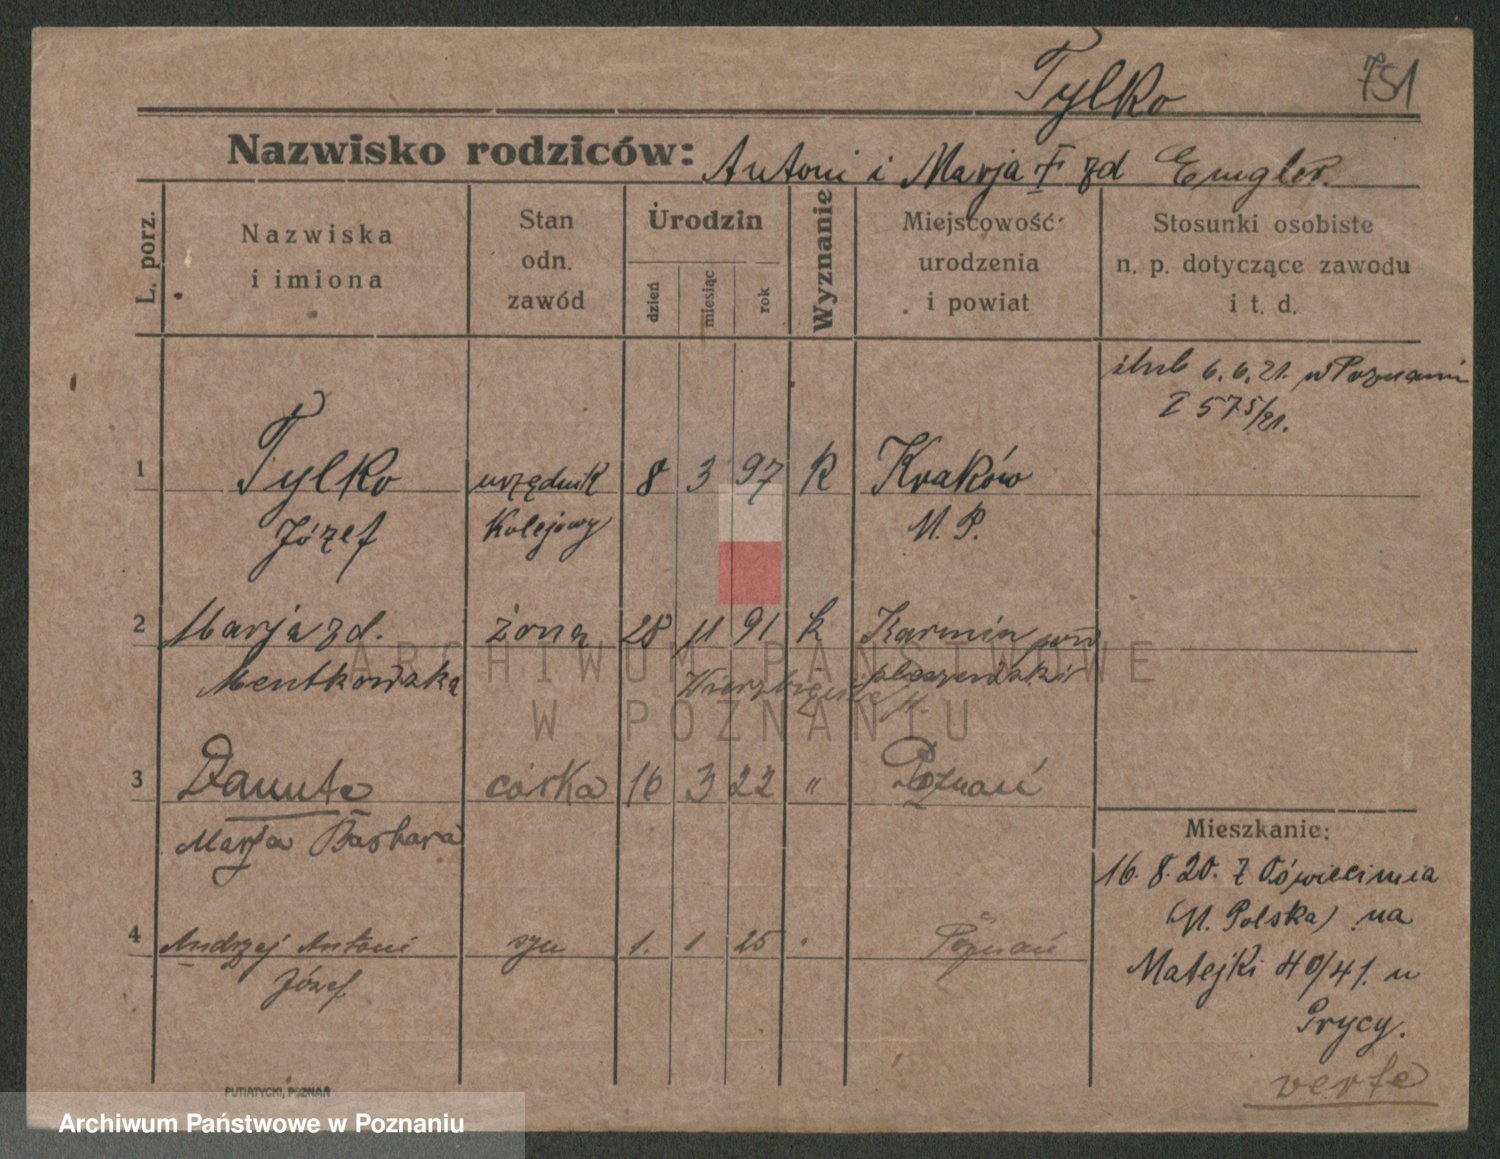 Tylko
751
Nazwisko rodziców: Antoni i Marja zd Emgler.
L. porz.
Nazwiska
i imiona
Stan
odn.
zawód
Urodzin
dzień
miesiąc
rok
Wyznanie
Miejscowość
urodzenia
i powiat
Stosunki osobiste
n. p. dotyczące zawodu
i t. d.
ślub 6.6.21. w Poznaniu
I 575/21.
1 Tylko urzędnik 8 3 97 k Kraków
Józef kolejowy M. P.
2 Marja zd. żona 28 11 91 k Karmin pow
Mentkowska pleszewski
3 Danuta córka 16 3 22 " Poznań
Marja Barbara
Mieszkanie:
16. 8. 20. z Oświecimia
(M. Polska) na
Matejki 40/41. u
Prycy.
verte
4 Andrzej Antoni syn 1. 1 25 " Poznań
Józef
PUTIATYCKI, POZNAŃ
ARCHIWUM PAŃSTWOWE
W POZNANIU
Archiwum Państwowe w Poznaniu